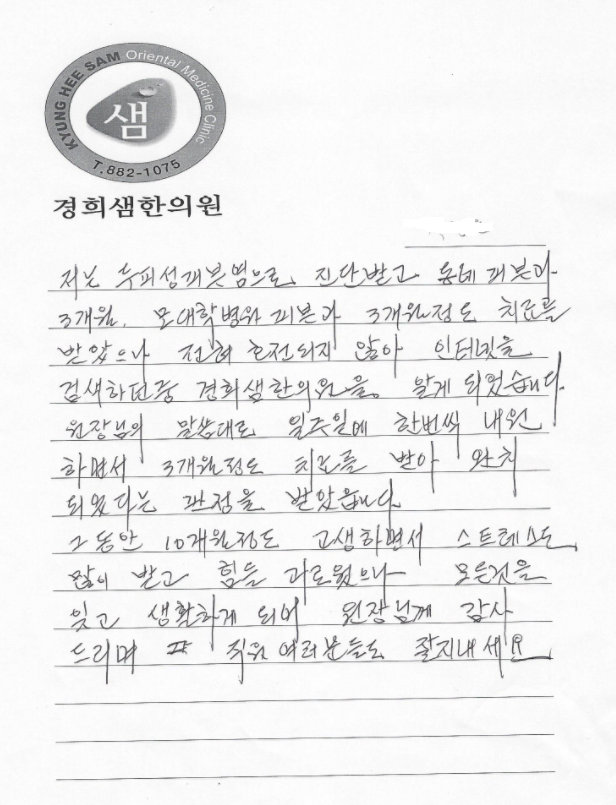 KYUNG HEE SAM Oriental Medicine Clinic
샘
T.882-1075
경희샘한의원
저는 두피성피부염으로 진단받고 동네 피부과
3개월. 모대학병원 피부과 3개월정도 치료를
받았으나 전혀 호전되지 않아 인터넷을
검색하던중 경희샘한의원을. 알게 되었습니다.
원장님의 말씀대로 일주일에 한번씩 내원
하면서 3개월정도 치료를 받아 완치
되었다는 판정을 받았습니다
그동안 10개월정도 고생하면서 스트레스도
많이 받고 힘들 괴로웠으나 모든것을
잊고 생활하게 되어 원장님께 감사
드리며 직원 여러분들도 잘지내세요